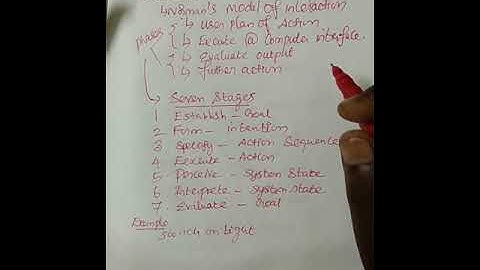 Norman's Model of Interaction
Phases
↳ User plan of Action
↳ Excute @ Computer interface.
↳ Evaluate output
↳ further action
→ Seven Stages
1 Establish - Goal
2 Form - intention
3 Specify - Action Sequence
4 Execute - Action
5 Perceive - System State
6 Interprete - System state
7 Evaluate - Goal
Example
Switch on Light